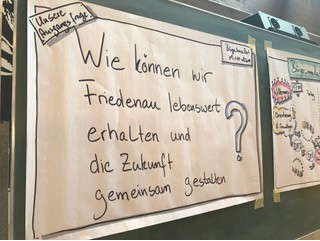 Unsere
Ausgangsfrage:
Wie können wir
Friedenau lebenswert
erhalten und
die Zukunft
gemeinsam gestalten
?